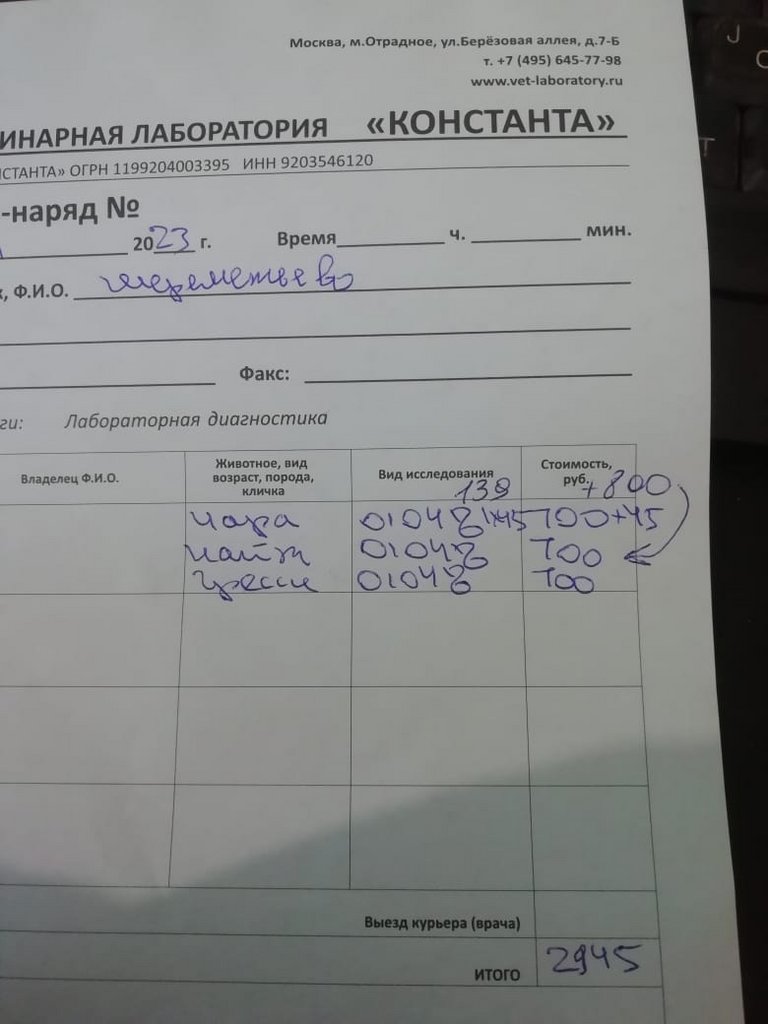 Москва, м.Отрадное, ул.Берёзовая аллея, д.7-Б
т. +7 (495) 645-77-98
www.vet-laboratory.ru
ИНАРНАЯ ЛАБОРАТОРИЯ «КОНСТАНТА»
НСТАНТА» ОГРН 1199204003395 ИНН 9203546120
-наряд №
2023 г. Время ч. мин.
, Ф.И.О. шереметьево
Факс:
ги: Лабораторная диагностика
Владелец Ф.И.О.
Животное, вид
возраст, порода,
кличка
Вид исследования
139
Стоимость,
руб.
+800
чара 01048 1145 700+45
найж 01048 700
гресси 01048 700
Выезд курьера (врача)
ИТОГО 2945